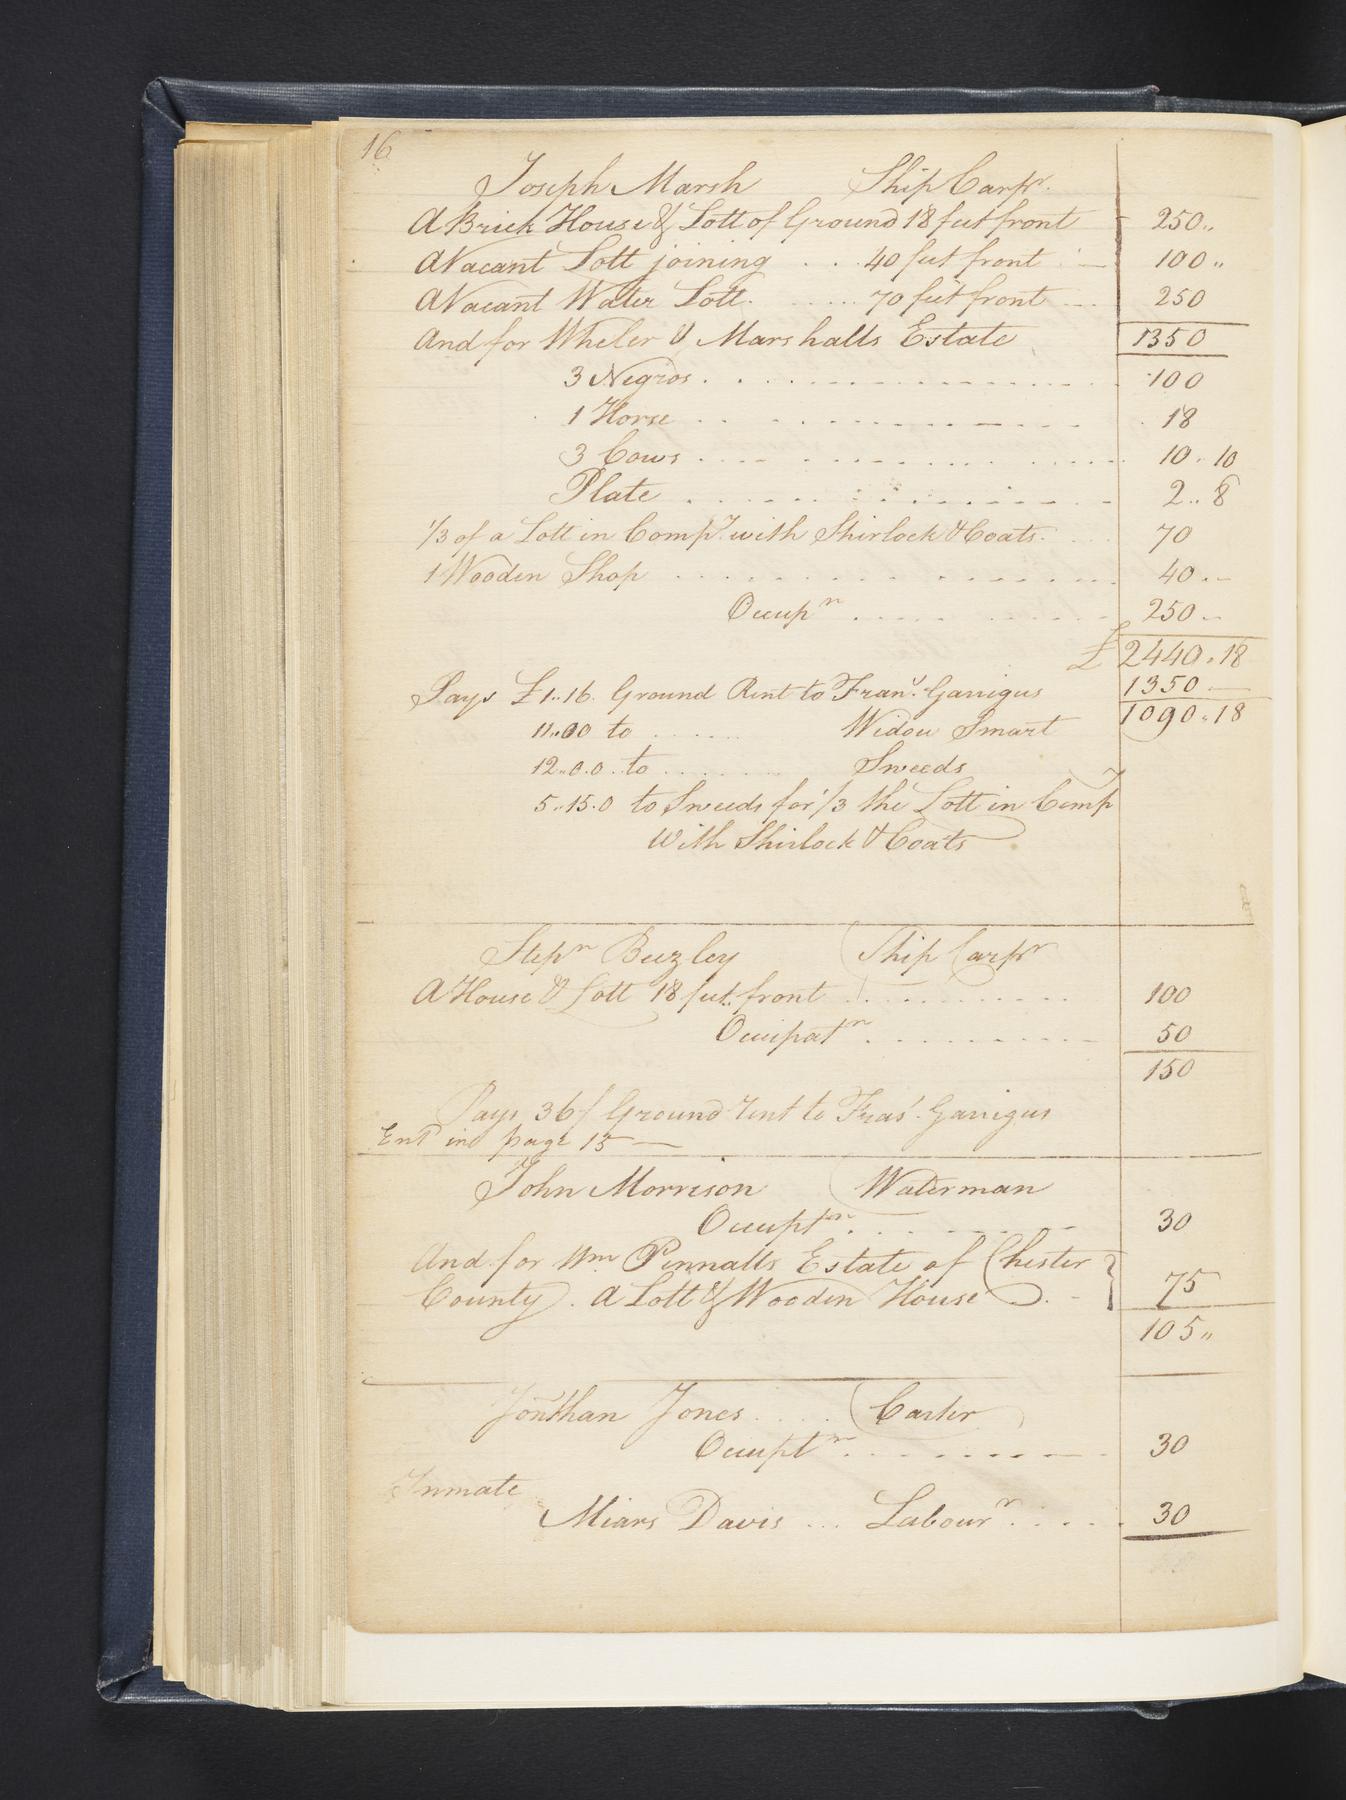 16
Joseph Marsh Ship Carpr.
A Brick House & Lott of Ground 18 feet front 250..
A Vacant Lott joining . . . 40 feet front 100..
A Vacant Water Lott. ..... 70 feet front 250
And for Wheler & Marshalls Estate 1350
3 Negros . . . . . . 100
1 Horse . . . . . . 18
3 Cows . . . . . . 10..10
Plate . . . . . . 2..8
1/3 of a Lott in Compy with Shirlock & Coats. 70
1 Wooden Shop . . . . . . 40..
Occupn . . . . . . 250..
£ 2440..18
Pays £1..16. Ground Rent to Frans. Garrigus 1350
11..00 to . . . . . . Widow Smart 1090..18
12..0.0. to . . . . . . Sweeds
5..15.0 to Sweeds for 1/3 the Lott in Compy
With Shirlock & Coats
Stepn Beezley Ship Carpr
A House & Lott 18 feet front . . . . . . 100
Occupatn . . . . . . 50
150
Pays 36/ Ground rent to Fras. Garrigus
Entd in page 15
John Morrison Waterman
Occuptn . . . . . . 30
And for Wm Pennalls Estate of Chester
County. A Lott & Wooden House . - 75
105..
Jonthan Jones . . . . Carter
Occuptn . . . . . . 30
Inmate
Miars Davis ... Labourr . . . . . 30